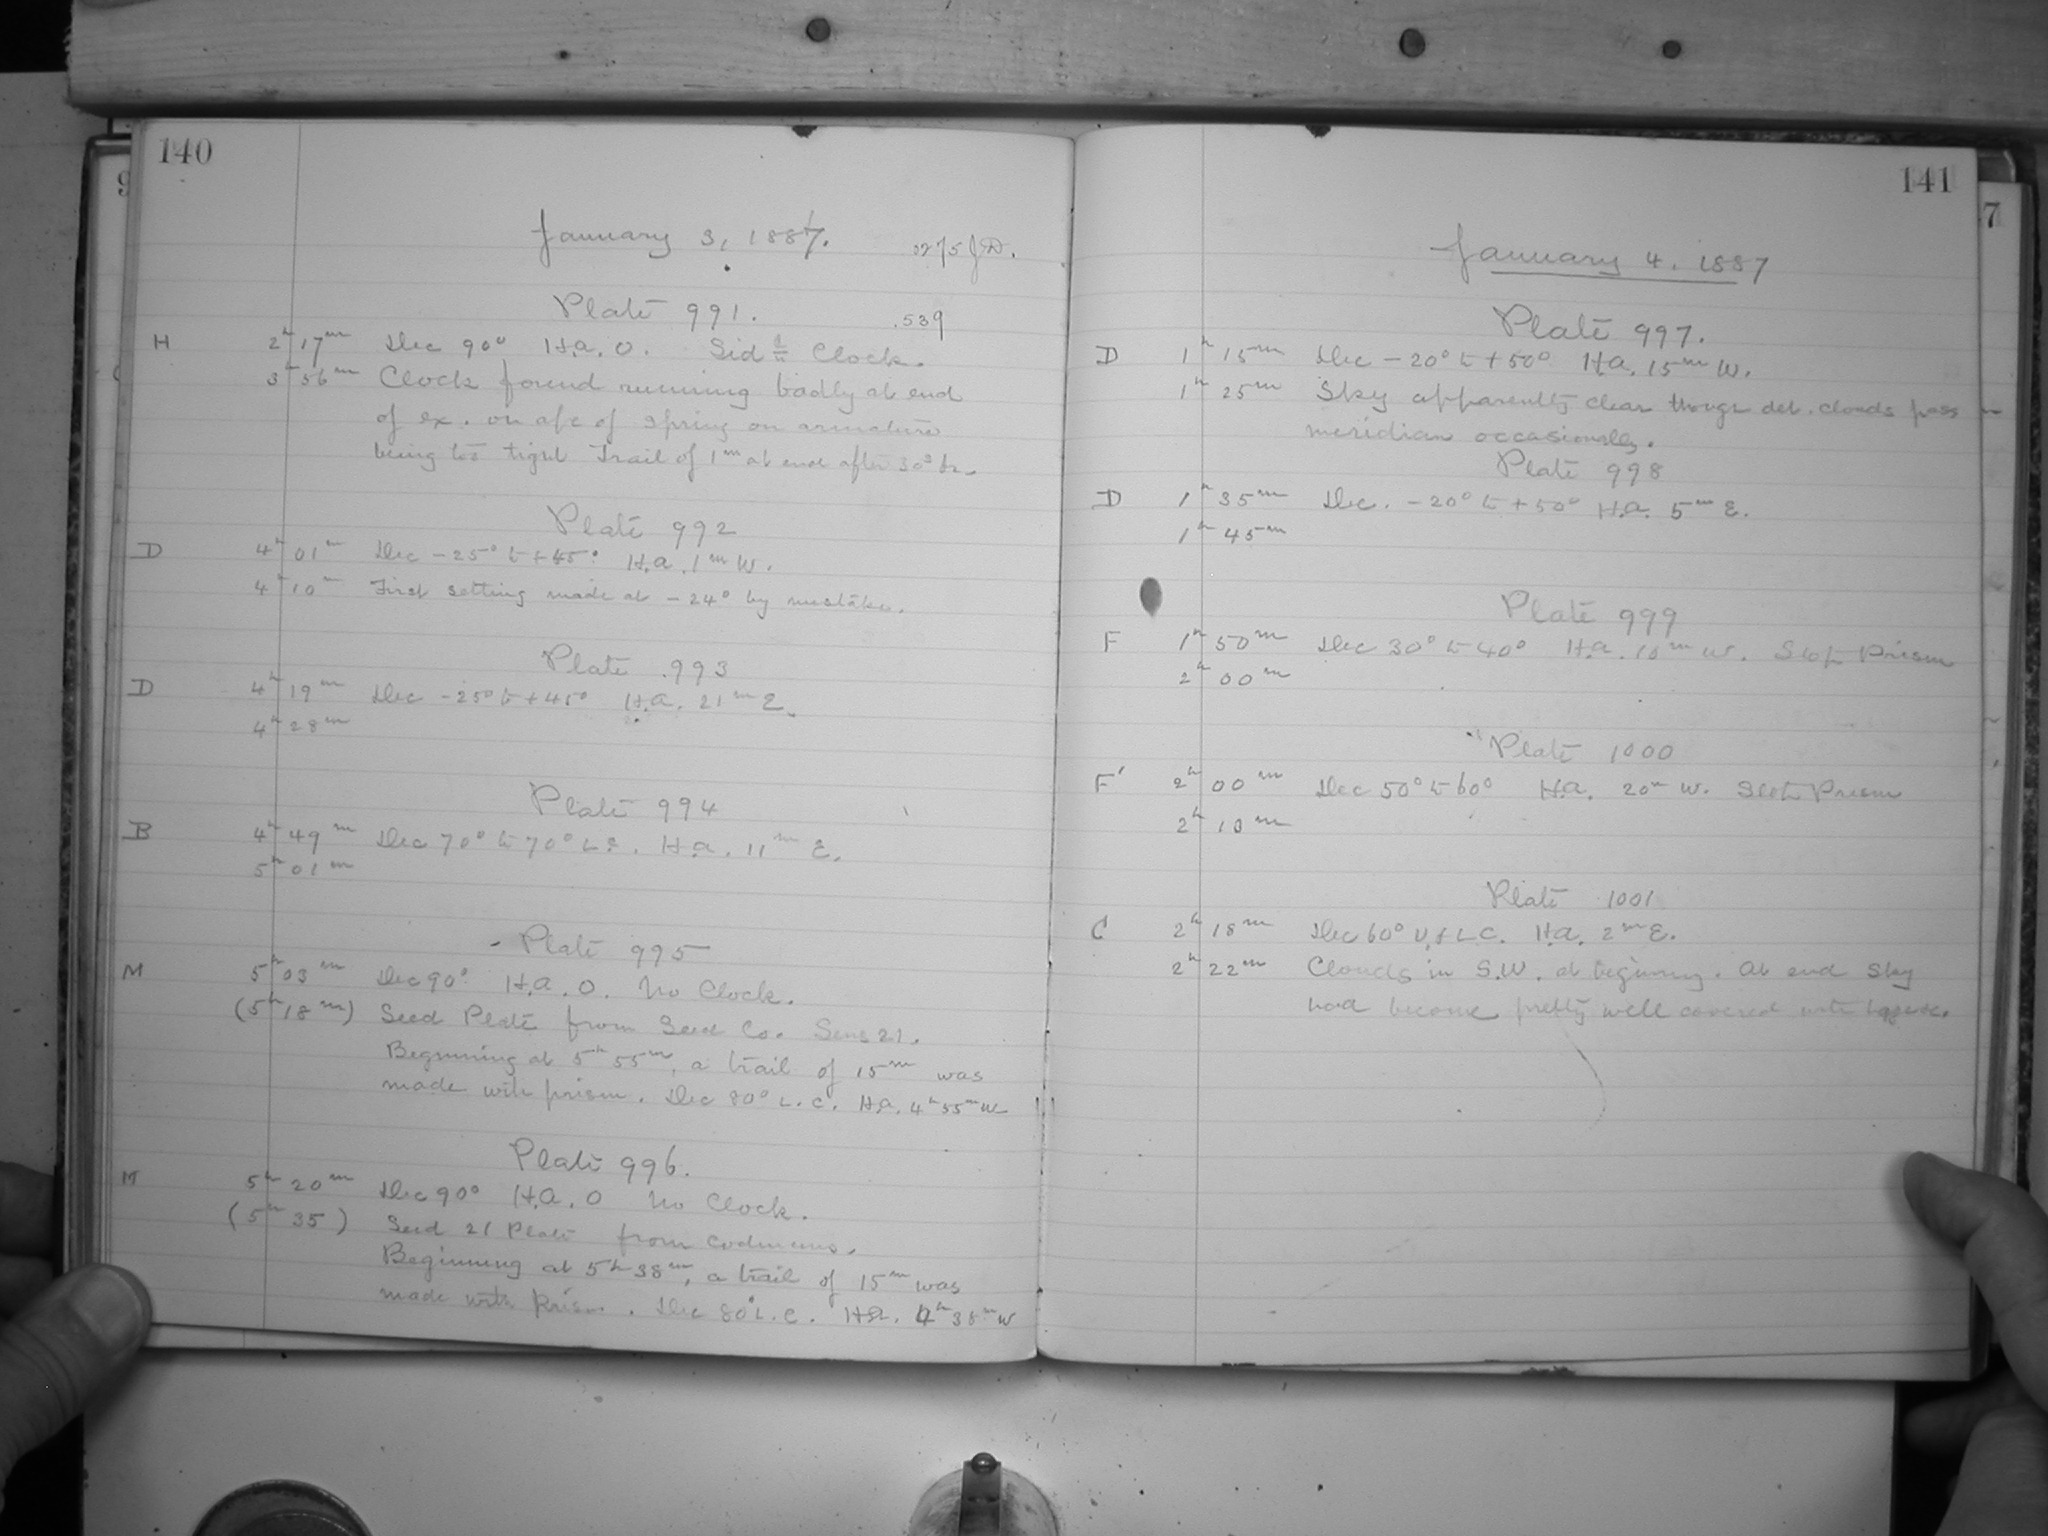 140
January 3, 1887.
3275 J.D.
Plate 991.
.539
H 2h 17m Dec 90° H.A. 0. Sid Clock.
3h 56m Clock found running badly at end
of ex. on a/c of spring on armature
being too tight Trail of 1m at end after 30s
Plate 992
D 4h 01m Dec -25° to +45° H.A. 1m W.
4h 10m First setting made at -24° by mistake.
Plate 993
D 4h 19m Dec -25° to +45° H.A. 21m E.
4h 28m
Plate 994
B 4h 49m Dec 70° to 70° L.C. H.A. 11m E.
5h 01m
Plate 995
M 5h 03m Dec 90° H.A. 0. No Clock.
(5h 18m) Seed Plate from Seed Co. Sens 21.
Beginning at 5h 55m, a trail of 15m was
made with prism. Dec 80° L.C. H.A. 4h 55m W
Plate 996.
M 5h 20m Dec 90° H.A. 0 No Clock.
(5h 35) Seed 21 Plate from
Beginning at 5h 38m, a trail of 15m was
made with prism. Dec 80° L.C. H.A. 4h 38m W
141
January 4, 1887
Plate 997.
D 1h 15m Dec -20° to +50° H.A. 15m W.
1h 25m Sky apparently clear though det. clouds pass
meridian occasionally.
Plate 998
D 1h 35m Dec. -20° to +50° H.A. 5m E.
1h 45m
Plate 999
F 1h 50m Dec 30° to 40° H.A. 10m W. Prism
2h 00m
Plate 1000
F' 2h 00m Dec 50° to 60° H.A. 20m W. Prism
2h 10m
Plate 1001
C 2h 18m Dec 60° U. & L.C. H.A. 2m E.
2h 22m Clouds in S.W. at beginning. At end sky
had become pretty well covered with